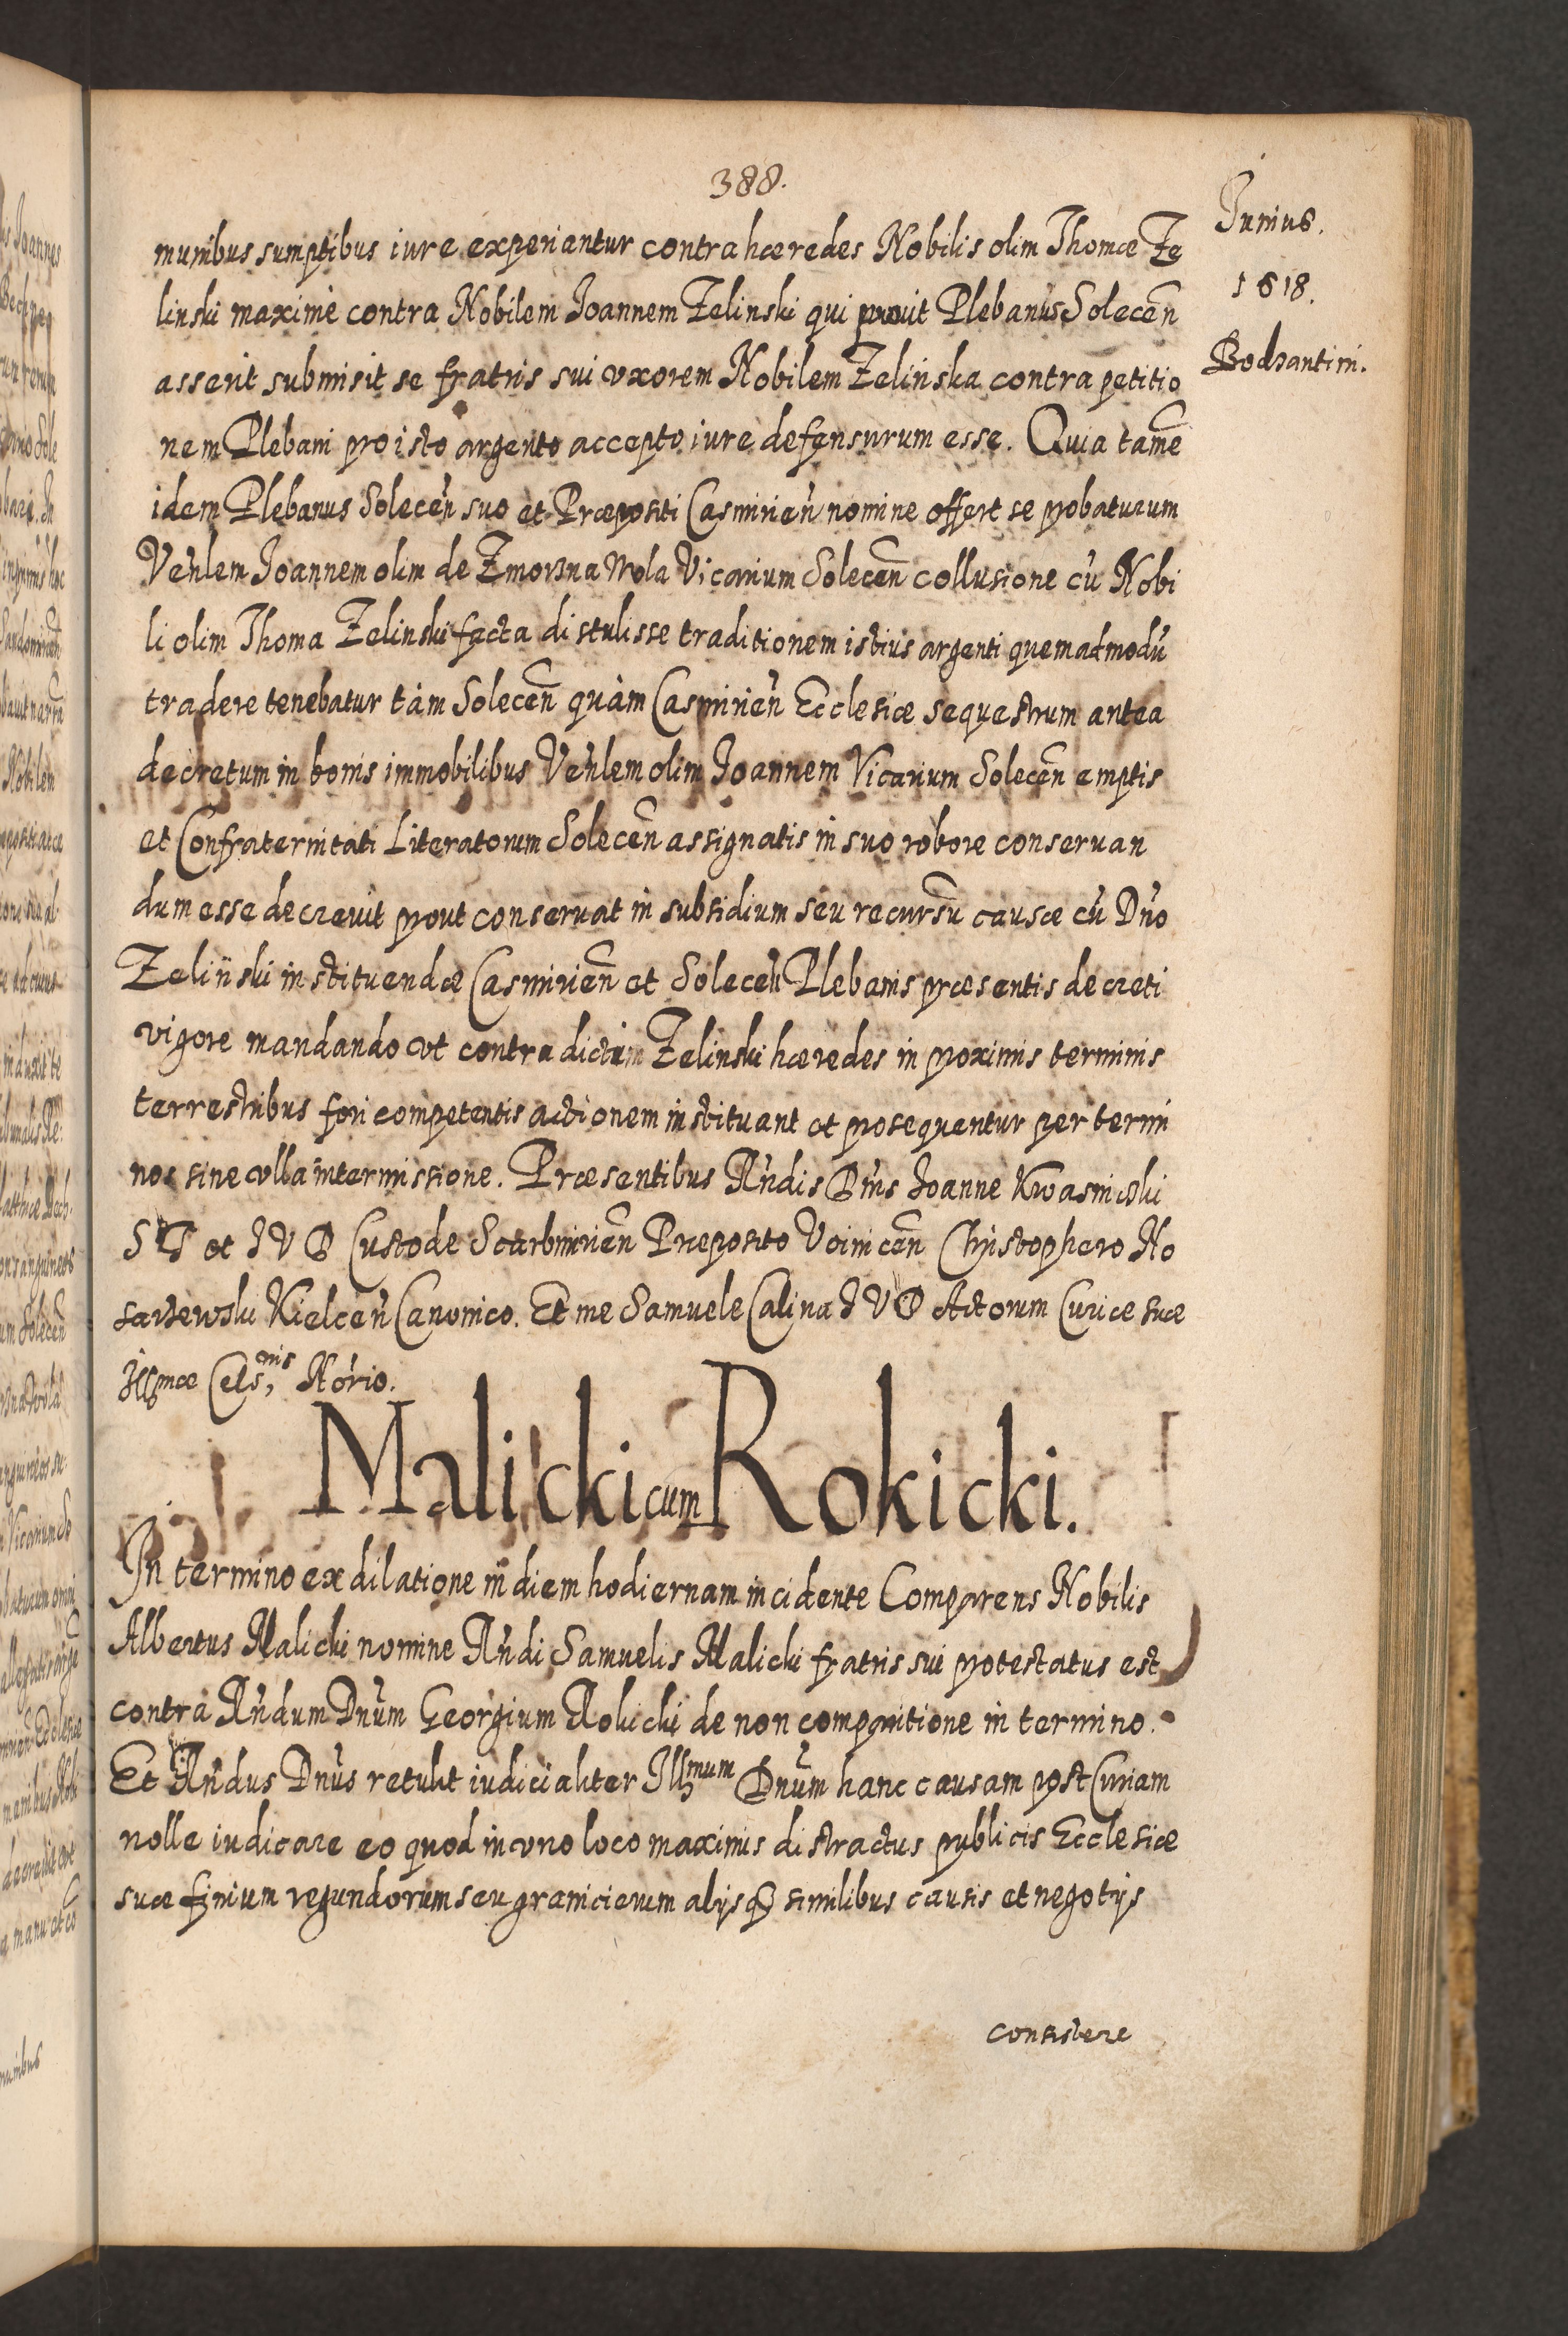 388.
Junius.
1618.
Bodzantini.
munibus sumptibus iure experiantur contra hæredes Nobilis olim Thomæ Ze
linski maximè contra Nobilem Joannem Zelinski qui prout Plebanus Solecen̄
asserit submisit se fratris sui vxorem Nobilem Zelinska contra petitio
nem Plebani pro isto argento accepto iure defensurum esse. Quia tamē
idem Plebanus Solecen̄ suo et Præpositi Casmirien̄ nomine offert se probaturum
Venlem Joannem olim de Zmorzna Wola Vicarium Solecen̄ collusione cū Nobi
li olim Thoma Zelinski facta distulisse traditionem istius argenti quemadmodū
tradere tenebatur tàm Solecen̄ quàm Casmirien̄ Ecclesiæ sequestrum antea
decretum in bonis immobilibus Venlem olim Joannem Vicarium Solecen̄ emptis
et Confraternitati Literatorum Solecen̄ assignatis in suo robore conseruan
dum esse decreuit prout conseruat in subsidium seu recursū causæ cū Dn̄o
Zelinski instituendæ Casmirien̄ et Solecen̄ Plebanis præsentis decreti
vigore mandando vt contra dictum Zelinski hæredes in proximis terminis
terrestribus fori competentis actionem instituant et prosequantur per termi
nos sine vlla intermissione. Præsentibus Rn̄dis Dn̄is Joanne Kwasniowski
S T et J V D Custode Scarbimirien̄ Preposito Voinicen̄ Christophero No
sarzewski Kielcen̄ Canonico. Et me Samuele Calina J V D Actorum Curiæ suæ
Illmæ Cels,onis Not̄rio.
Malicki cum Rokicki.
In termino ex dilatione in diem hodiernam incidente Comparens Nobilis
Albertus Malicki nomine Rn̄di Samuelis Malicki fratris sui protestatus est
contra Rn̄dum Dn̄um Georgium Rokicki de non comparitione in termino.
Et Rn̄dus Dn̄us retulit iudicialiter Illmum Dn̄um hanc causam post Curiam
nolle iudicare eo quod in vno loco maximis distractus publicis Ecclesiæ
suæ finium regundorum seu granicierum alijsq̄ similibus causis et negotijs
consistere